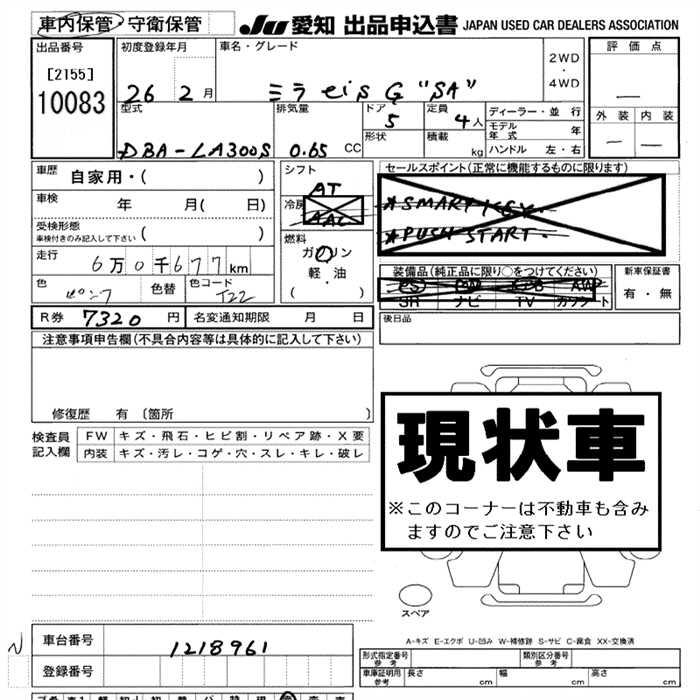 車内保管・守衛保管
JU 愛知 出品申込書 JAPAN USED CAR DEALERS ASSOCIATION
出品番号 初度登録年月 車名・グレード 評価点
[2155]
10083
26 2月 ミラ eis G "SA"
2WD
・
4WD
―
型式 排気量 ドア 定員 ディーラー・並行 外装 内装
5 4人
モデル年式 年
DBA-LA300S 0.65 CC 形状 積載 kg ハンドル 左・右
― ―
車歴 自家用・( )
シフト AT
セールスポイント(正常に機能するものに限ります)
車検 年 月( 日)
冷房 AAC
★SMART KEY.
★PUSH START.
受検形態
車検付きのみ記入して下さい ( )
燃料
ガソリン
軽・油
( )
走行 6万0千677km
装備品(純正品に限り○をつけてください) 新車保証書
色 ピンク 色替 色コード T22
PS PW エアB AW
SR ナビ TV カワシート
有・無
R券 7320円 名変通知期限 月 日
後日品
注意事項申告欄(不具合内容等は具体的に記入して下さい)
修復歴 有 〔箇所 〕
現状車
※このコーナーは不動車も含み
ますのでご注意下さい
検査員記入欄 FW キズ・飛石・ヒビ割・リペア跡・X要
内装 キズ・汚レ・コゲ・穴・スレ・キレ・破レ
スペア
A-キズ E-エクボ U-凹み W-補修跡 S-サビ C-腐食 XX-交換済
N 車台番号 1218961
登録番号
形式指定番号 参考 類別区分番号 参考
車庫証明用 参考 長さ cm 幅 cm 高さ cm